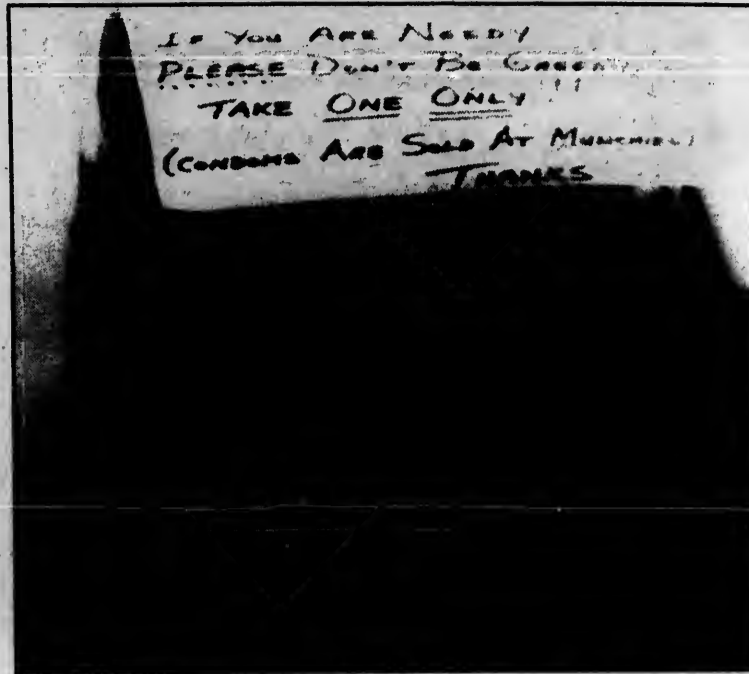 If You Are Needy
Please Don't Be Greedy
Take One Only
(Condoms Are Sold At Munchies)
Thanks